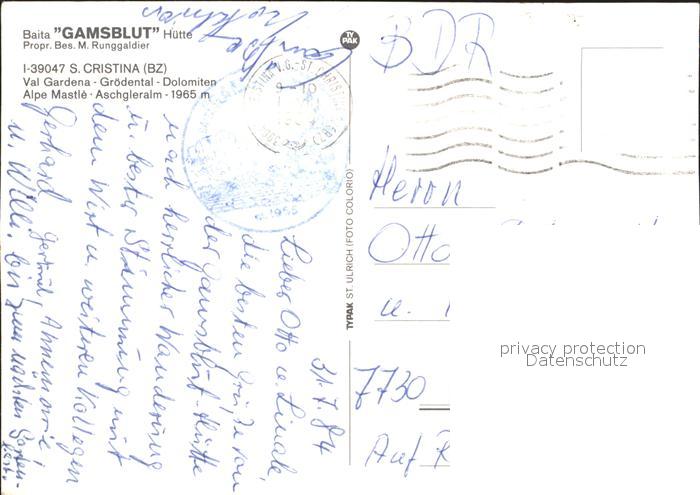 Baita "GAMSBLUT" Hütte
Propr. Bes. M. Runggaldier
I-39047 S. CRISTINA (BZ)
Val Gardena - Grödental - Dolomiten
Alpe Mastlè - Aschgleralm - 1965 m
TYPAK
TYPAK ST. ULRICH (FOTO COLORIO)
31.7.84
Lieber Otto u.
die besten Grüße von
der Gamsblut-Hütte
nach herrlicher Wanderung
u. bester Stimmung mit
dem Wirt u. weiteren Kollegen
Gerhard, Gertrud, Annemarie,
u. Willi. bis zum nächsten
BDR
Herrn
Otto
u.
7730
Auf
privacy protection
Datenschutz